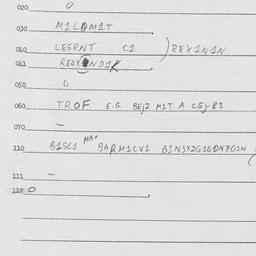 020 0
030 M1LDM1T
040 LESRNT C1 ) REX1N1N
041
050 0
060 TROF E.G. BEJ2 M1T A CEJ-R3
070 —
110 B1SC1 MA+ BARM1CV1 B2N3X2G1GDN7G1N
111 —
112 0